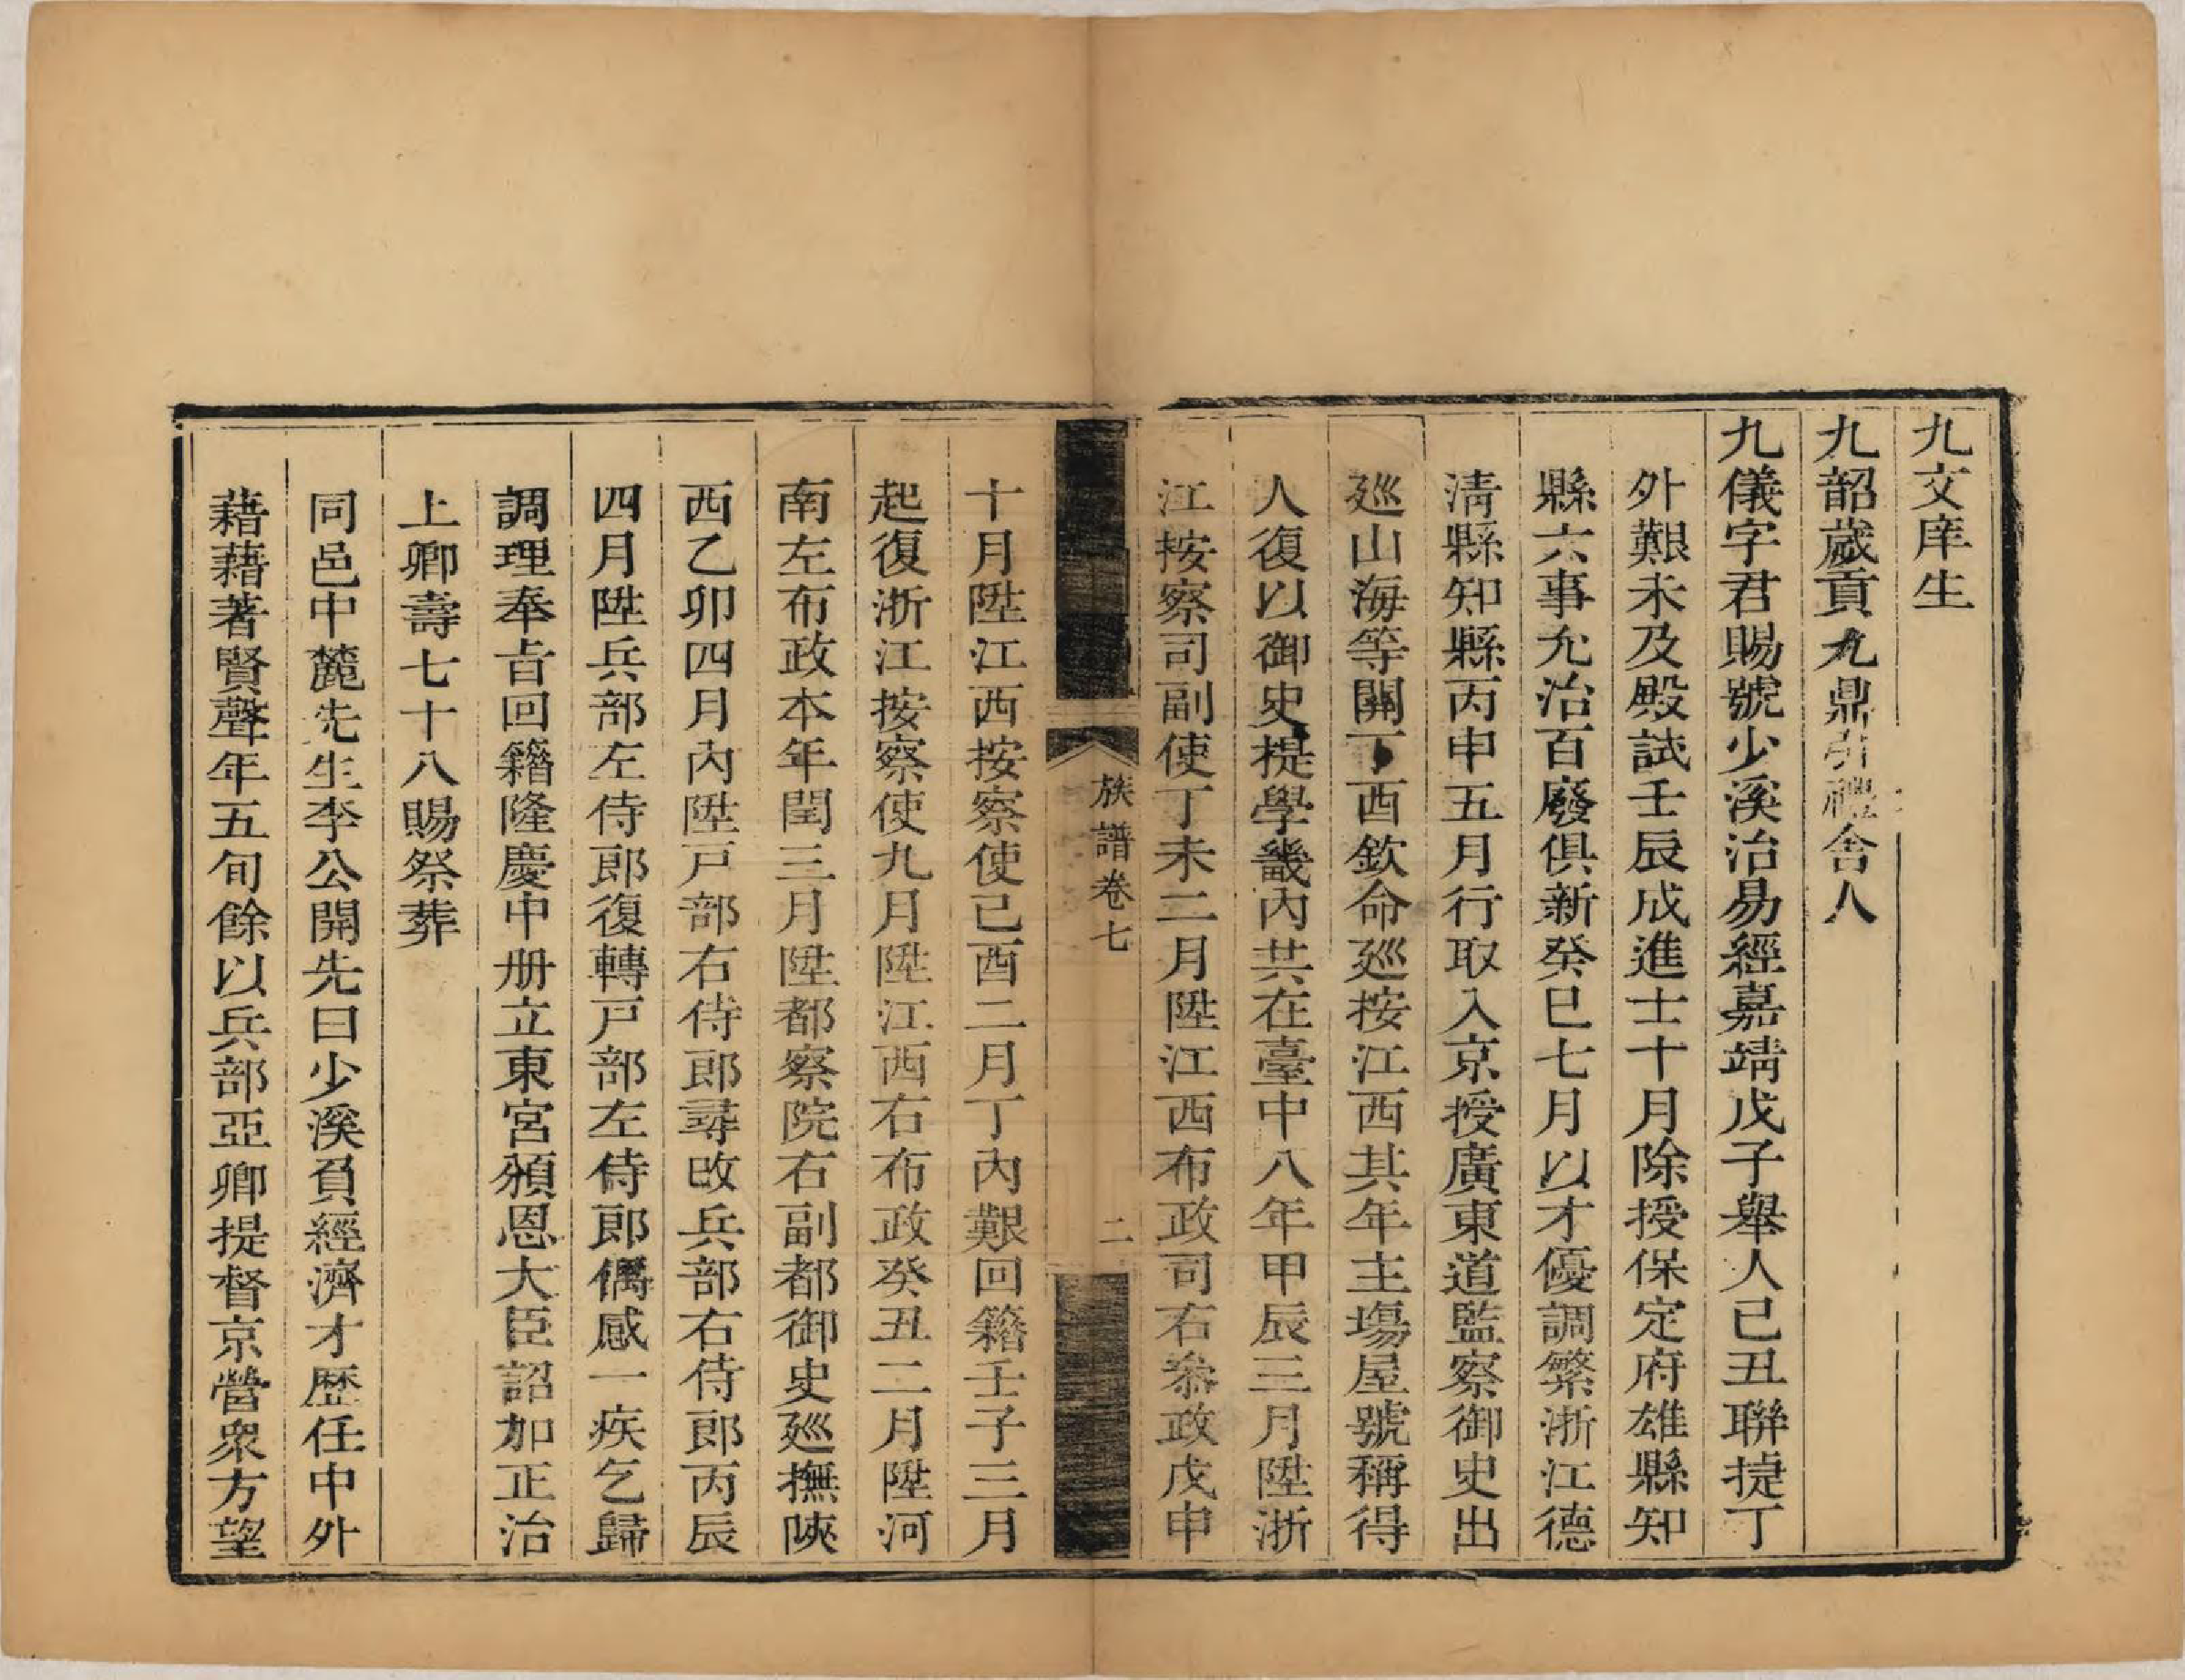 九文庠生
九韶歲貢九鼎引禮舍人
九儀字君賜號少溪治易經嘉靖戊子舉人已丑聯捷丁
外艱未及殿試壬辰成進士十月除授保定府雄縣知
縣六事允治百廢俱新癸巳七月以才優調繁浙江德
清縣知縣丙申五月行取入京授廣東道監察御史出
廵山海等關丁酉欽命廵按江西其年主塲屋號稱得
人復以御史提學畿內共在臺中八年甲辰三月陞浙
江按察司副使丁未二月陞江西布政司右叅政戊申
族譜卷七
二
十月陞江西按察使已酉二月丁內艱回籍壬子三月
起復浙江按察使九月陞江西右布政癸丑二月陞河
南左布政本年閏三月陞都察院右副都御史廵撫陝
西乙卯四月內陞戸部右侍郎尋改兵部右侍郎丙辰
四月陞兵部左侍郎復轉戸部左侍郎偶感一疾乞歸
調理奉㫖回籍隆慶中册立東宮頒恩大臣詔加正治
上卿壽七十八賜祭葬
同邑中麓先生李公開先曰少溪負經濟才歷任中外
藉藉著賢聲年五旬餘以兵部亞卿提督京營衆方望